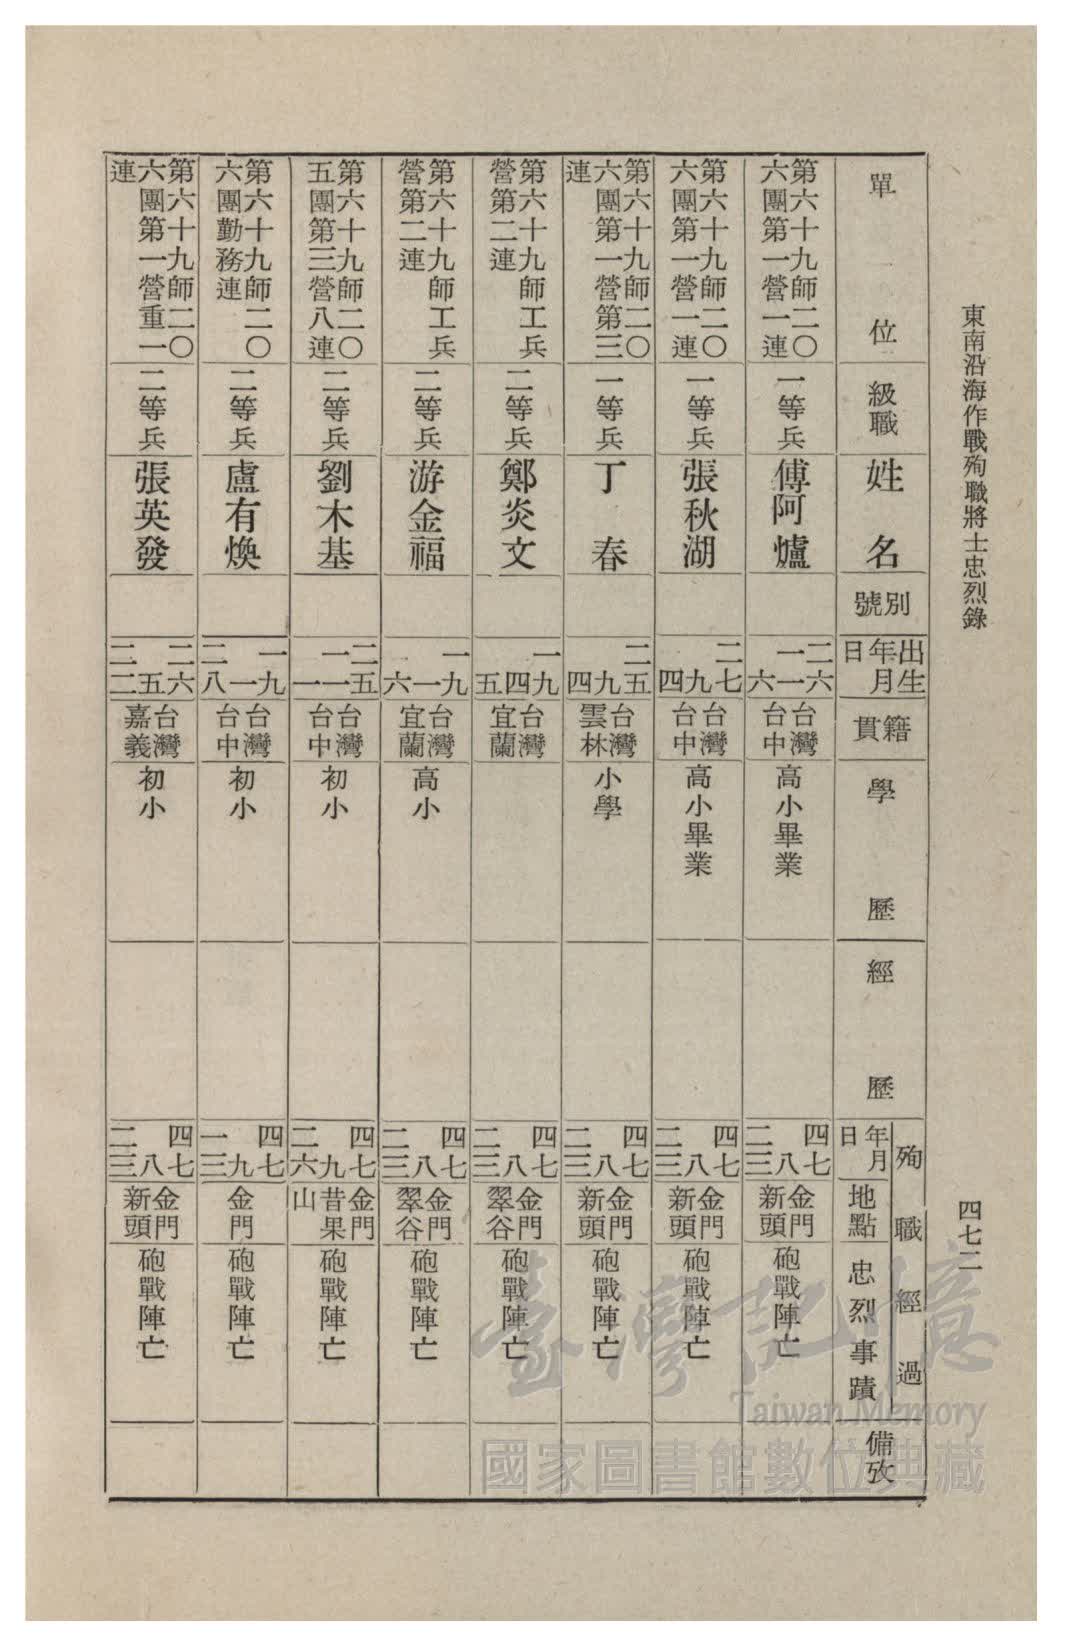 東南沿海作戰殉職將士忠烈錄
四七二
單位
級職
姓名
別號
出生
年月
日
籍貫
學歷
經歷
殉職經過
年月
日
地點
忠烈事蹟
備攷
第六十九師二〇
六團第一營一連
一等兵
傅阿爐
二六
一一
六
台灣
台中
高小畢業
四七
八
二三
金門
新頭
砲戰陣亡
第六十九師二〇
六團第一營一連
一等兵
張秋湖
二七
九
四
台灣
台中
高小畢業
四七
八
二三
金門
新頭
砲戰陣亡
第六十九師二〇
六團第一營第三
連
一等兵
丁春
二五
九
四
台灣
雲林
小學
四七
八
二三
金門
新頭
砲戰陣亡
第六十九師工兵
營第二連
二等兵
鄭炎文
一九
四
五
台灣
宜蘭
四七
八
二三
金門
翠谷
砲戰陣亡
第六十九師工兵
營第二連
二等兵
游金福
一九
一
六
台灣
宜蘭
高小
四七
八
二三
金門
翠谷
砲戰陣亡
第六十九師二〇
五團第三營八連
二等兵
劉木基
二五
一一
一
台灣
台中
初小
四七
九
二六
金門
昔果
山
砲戰陣亡
第六十九師二〇
六團勤務連
二等兵
盧有煥
一九
一
二八
台灣
台中
初小
四七
九
一三
金門
砲戰陣亡
第六十九師二〇
六團第一營重一
連
二等兵
張英發
二六
五
二二
台灣
嘉義
初小
四七
八
二三
金門
新頭
砲戰陣亡
臺灣記憶
Taiwan Memory
國家圖書館數位典藏